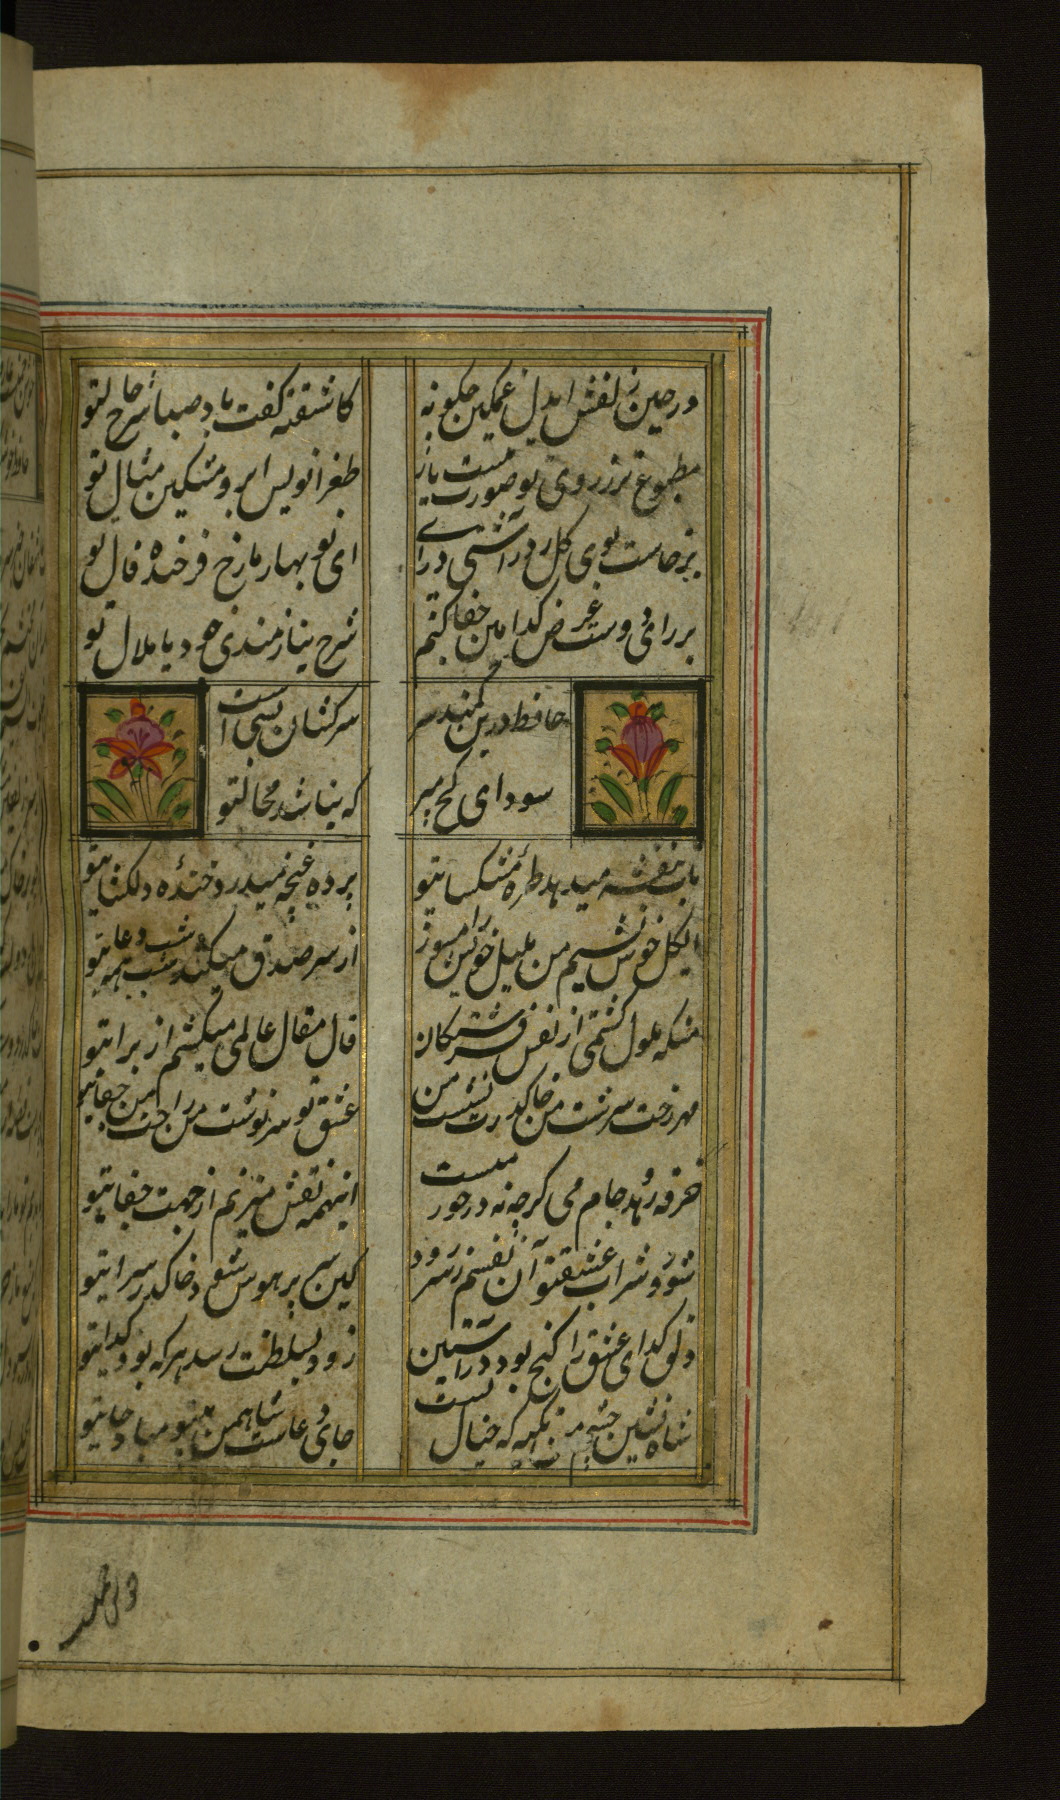 در چین زلفش ایدل غمکین چکونه
کاشفته کفت باد صبا شرح حالتو
مطبوع تر ز روی تو صورت نبست باز
طغرانویس ابرو مشکین مثال تو
برخاست بوی کل ز در آشتی درای
ای نو بهار ما رخ فرخنده فال تو
بر رای دوست عرض کدامین جفا کنم
شرح نیازمندی خود یا ملال تو
حافظ درین کمند سر
سرکشان بسی است
سودای کج مپز
که نباشد مجالتو
تاب بنفشه میدهد طره مشکسایتو
پرده غنچه میدرد خنده دلکشایتو
ایکل خوش نسیم من بلبل خویش را مسوز
از سر صدق میکند شب همه شب دعایتو
منکه ملول کشتمی از نفس فرشتکان
قال مقال عالمی میکشم از برایتو
مهر رخت سرشت من خاک درت بهشت من
عشق تو سرنوشت من راحت من جفایتو
خرقه زهد جام می کرچه نه در خور
همست
اینهمه نقش میزنم از جهت جفایتو
شور شراب عشقتو آن نفسم رود ز سر
کین سر پر هوس شود خاک در سرایتو
دلق کدای عشق را کنج بود در آستین
زود بسلطنت رسد هر که بود کدایتو
شاه نشین چشم من تکیه که خیال تست
جای دعاست شاه من بیتو مباد جایتو